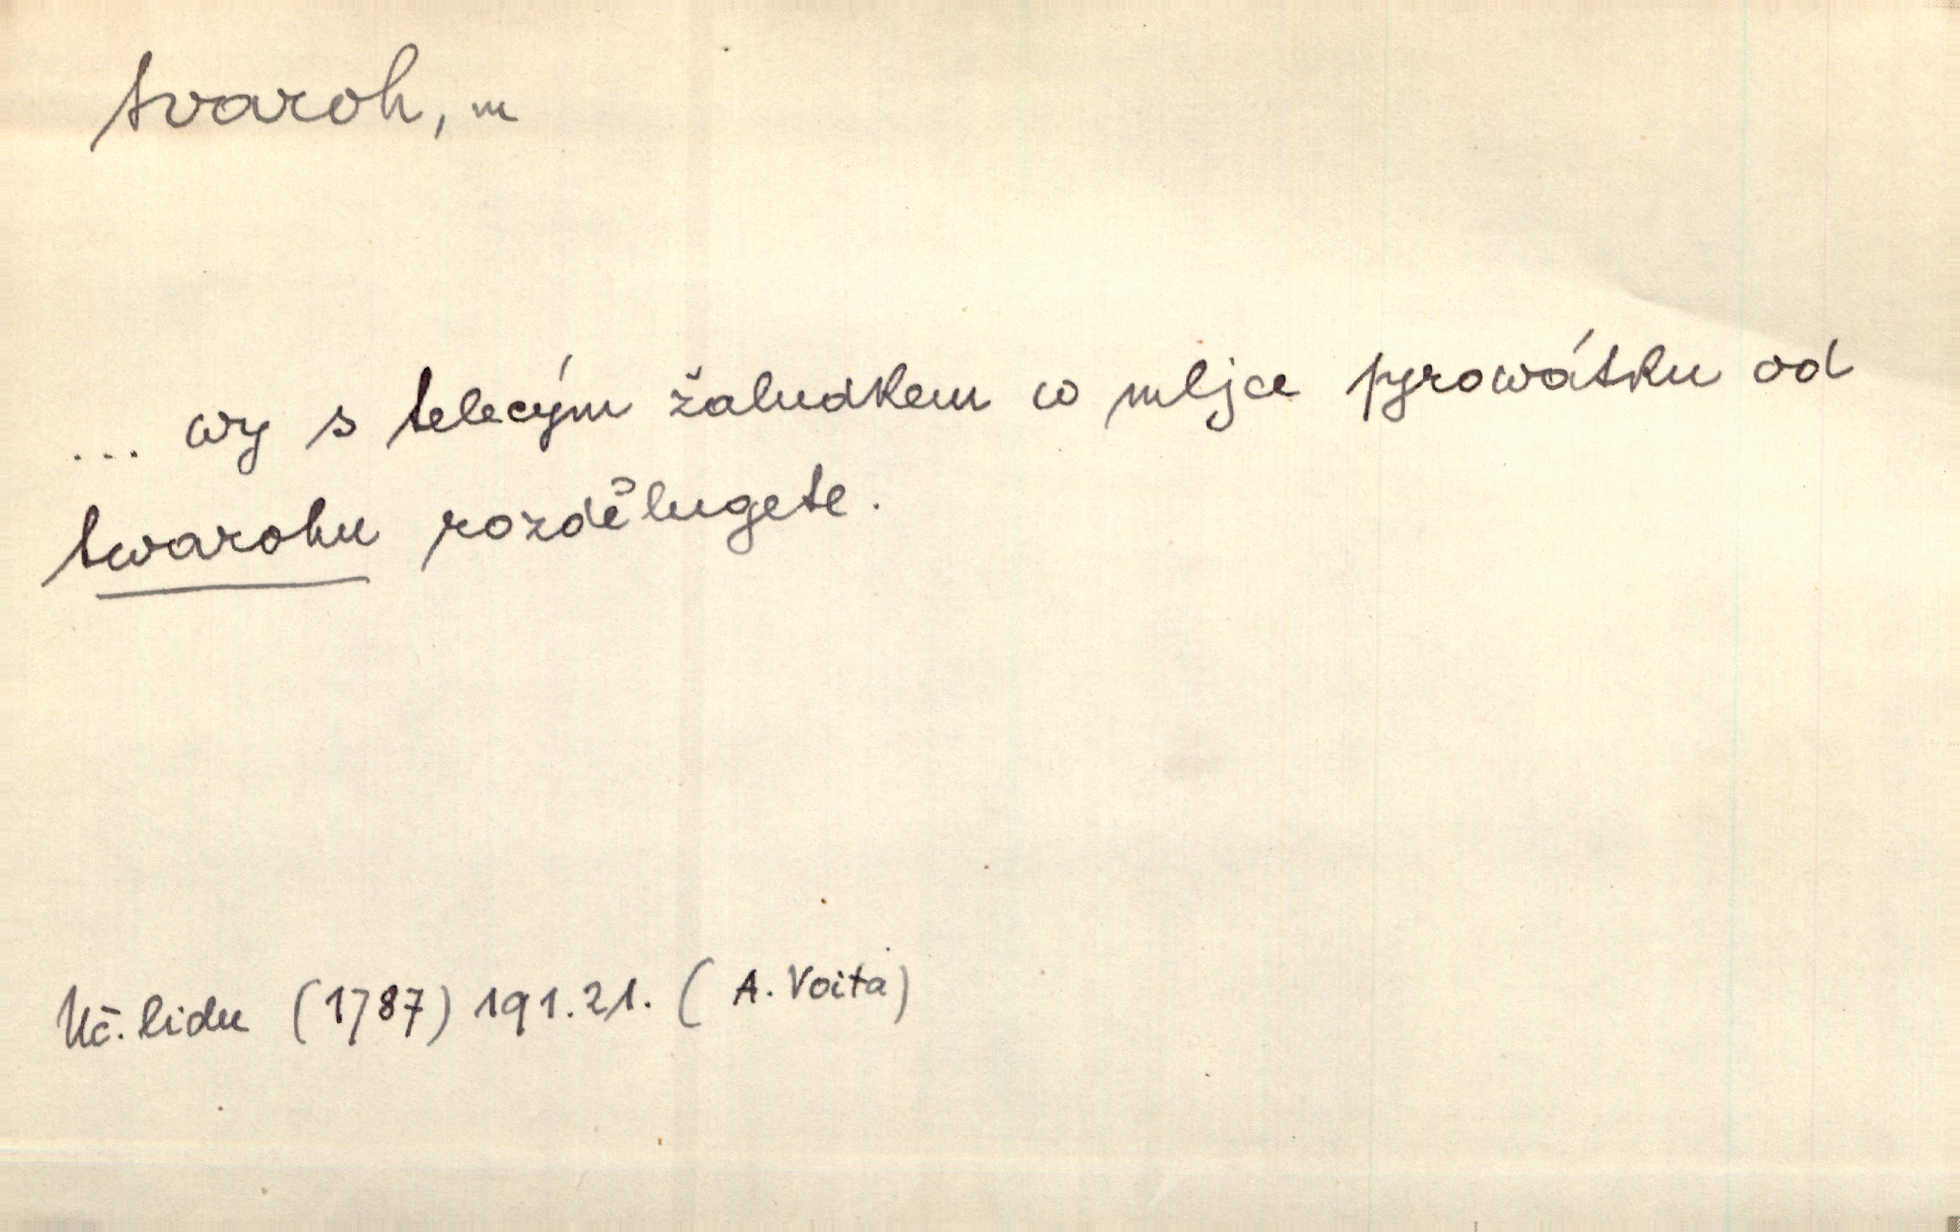 tvaroh, m
... wy s telecým žaludkem w mljce pyrowátku od
twarohu rozdělugete.
Uč. lidu (1787) 191.21. (A. Voita)